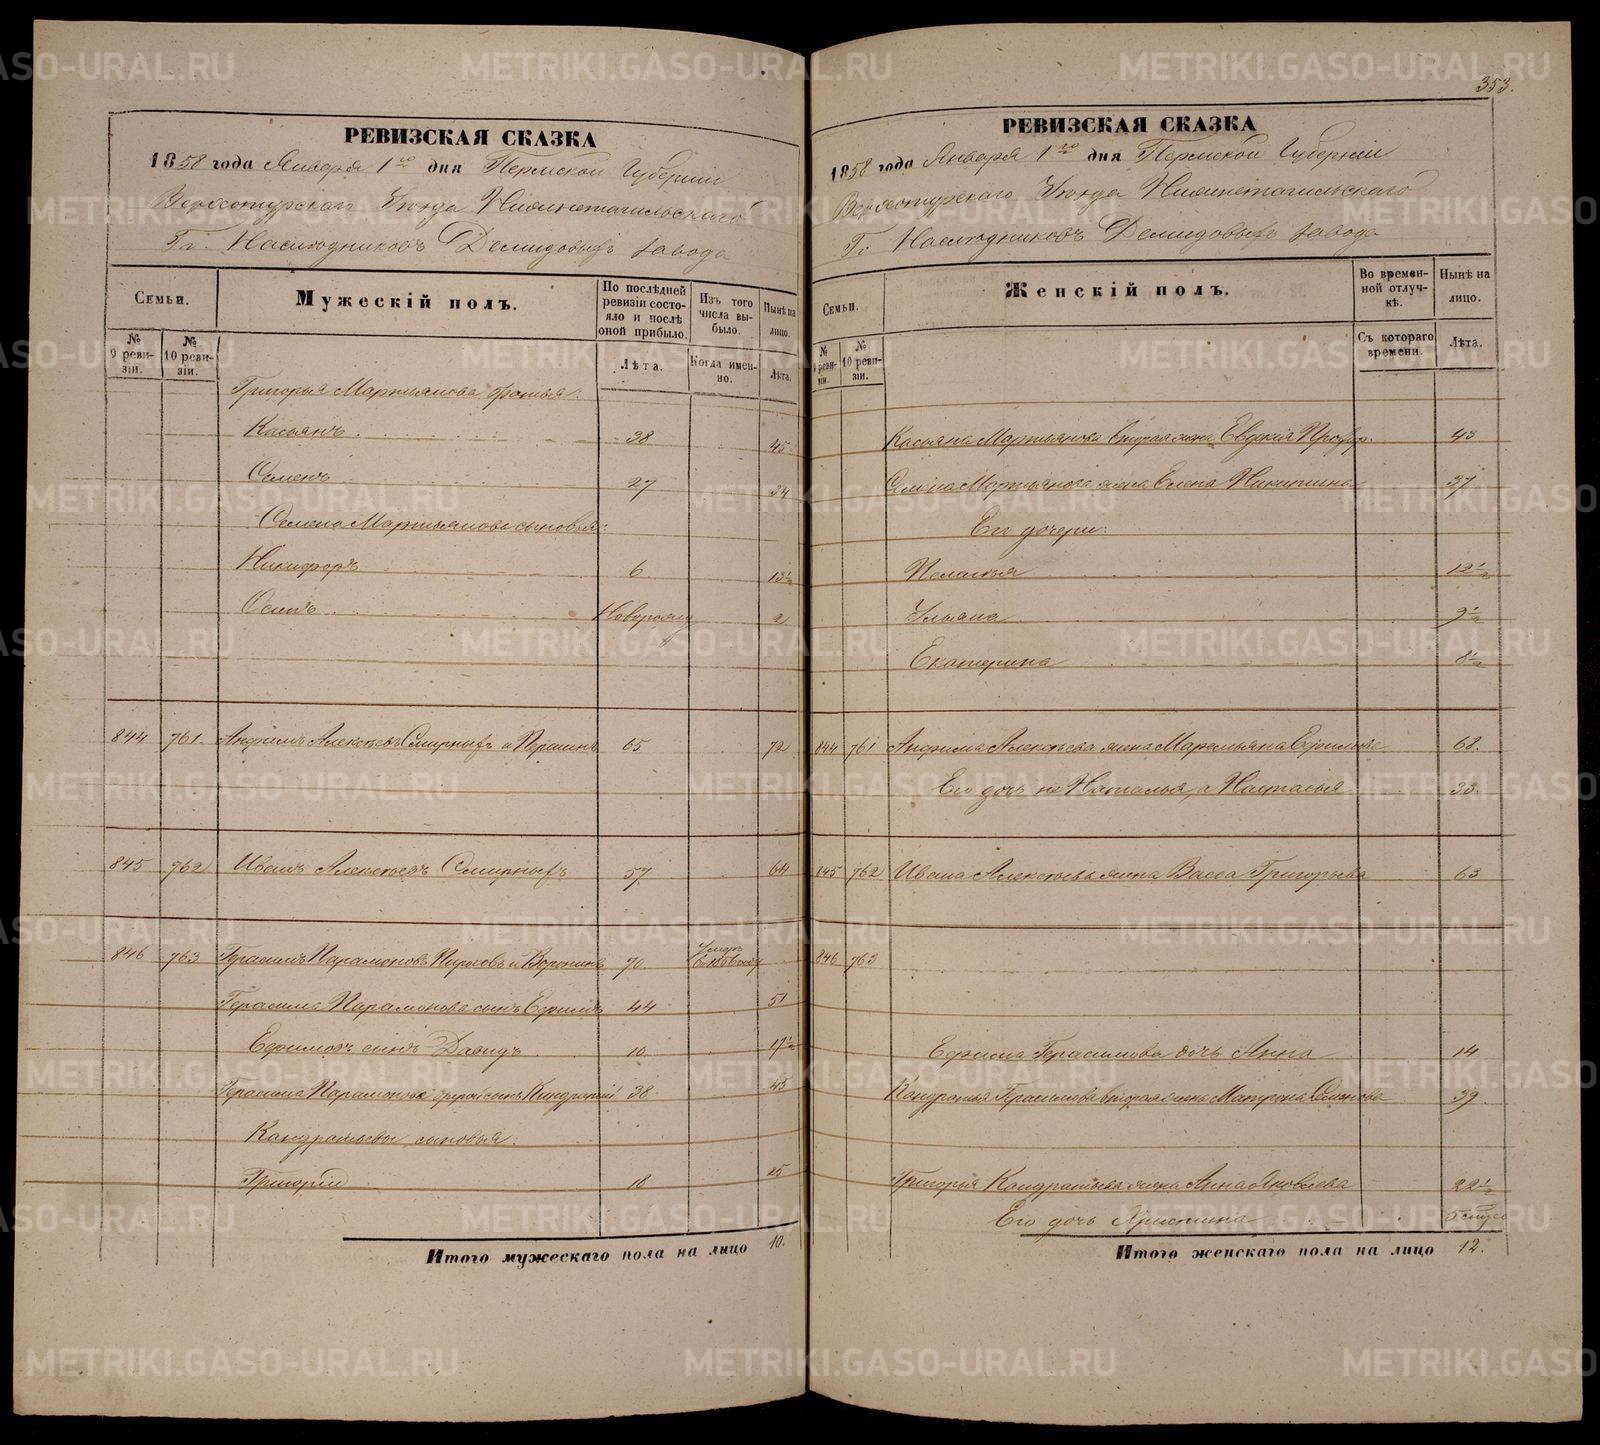 353.
РЕВИЗСКАЯ СКАЗКА
1858 года Января 1го дня Пермской Губерніи
Верхотурскаго Уѣзда Нижнетагильскаго
Гг. Наслѣдниковъ Демидовыхъ завода
Семьи.
Мужескій полъ.
По послѣдней ревизіи состояло и послѣ оной прибыло.
Изъ того числа выбыло.
Нынѣ на лицо.
№ 9 ревизіи.
№ 10 ревизіи.
Лѣта.
Когда именно.
Лѣта.
Григорья Мартьянова братья:
Касьянъ 38 45
Семенъ 27 34
Семена Мартьянова сыновья:
Никифоръ 6 13½
Осипъ Новорожд 2
844 761 Анфимъ Алексѣевъ Смирныхъ и 65 72
845 762 Иванъ Алексѣевъ Смирныхъ 57 64
846 763 Герасимъ Парамоновъ и Воронинъ 70
Герасима Парамонова сынъ Ефимъ 44 51
Ефимовъ сынъ Давидъ 10 17½
Герасима Парамонова другой сынъ Кондратій 38 45
Кондратьевы сыновья:
Григорій 18 25
Итого мужескаго пола на лицо 10.
РЕВИЗСКАЯ СКАЗКА
1858 года Января 1го дня Пермской Губерніи
Верхотурскаго Уѣзда Нижнетагильскаго
Гг. Наслѣдниковъ Демидовыхъ завода
Семьи.
Женскій полъ.
Во временной отлучкѣ.
Нынѣ на лицо.
№ 9 ревизіи.
№ 10 ревизіи.
Съ котораго времени.
Лѣта.
Касьяна Мартьянова вторая жена Евдокія 43
Семена Мартьянова жена Елена Никитина 37
Его дочери:
Пелагья 12½
Ульяна 9½
Екатерина 8½
844 761 Анфима Алексѣева жена Маремьяна Ефимова 68.
Его дочь не Наталья, а Настасья 33.
845 762 Ивана Алексѣева жена Васса Григорьева 63
846 763
Ефима Герасимова дочь Анна 14
Кондратья Герасимова вторая жена Матрона Семенова 39
Григорья Кондратьева жена Анна Яковлева 22½
Его дочь Христина
Итого женскаго пола на лицо 12.
METRIKI.GASO-URAL.RU